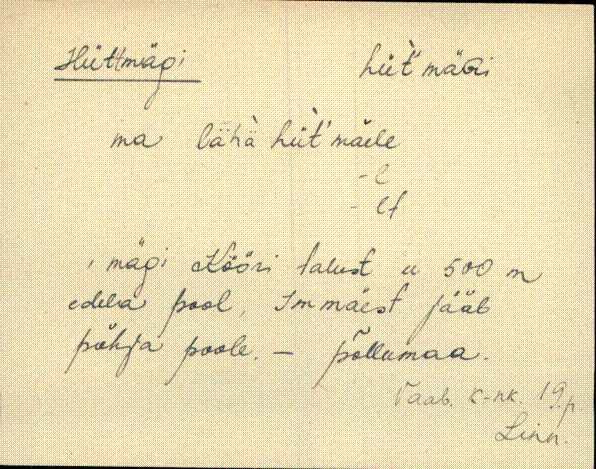 Hüttmägi hüt̀'mäGi
ma lähä̀ hüt̀'mäele
-l
- lt
, mägi Kööri talust u 500 m
edela pool, Immäest jääb
põhja poole. — põllumaa.
Vaab. k-nk. 19.p
Linn.